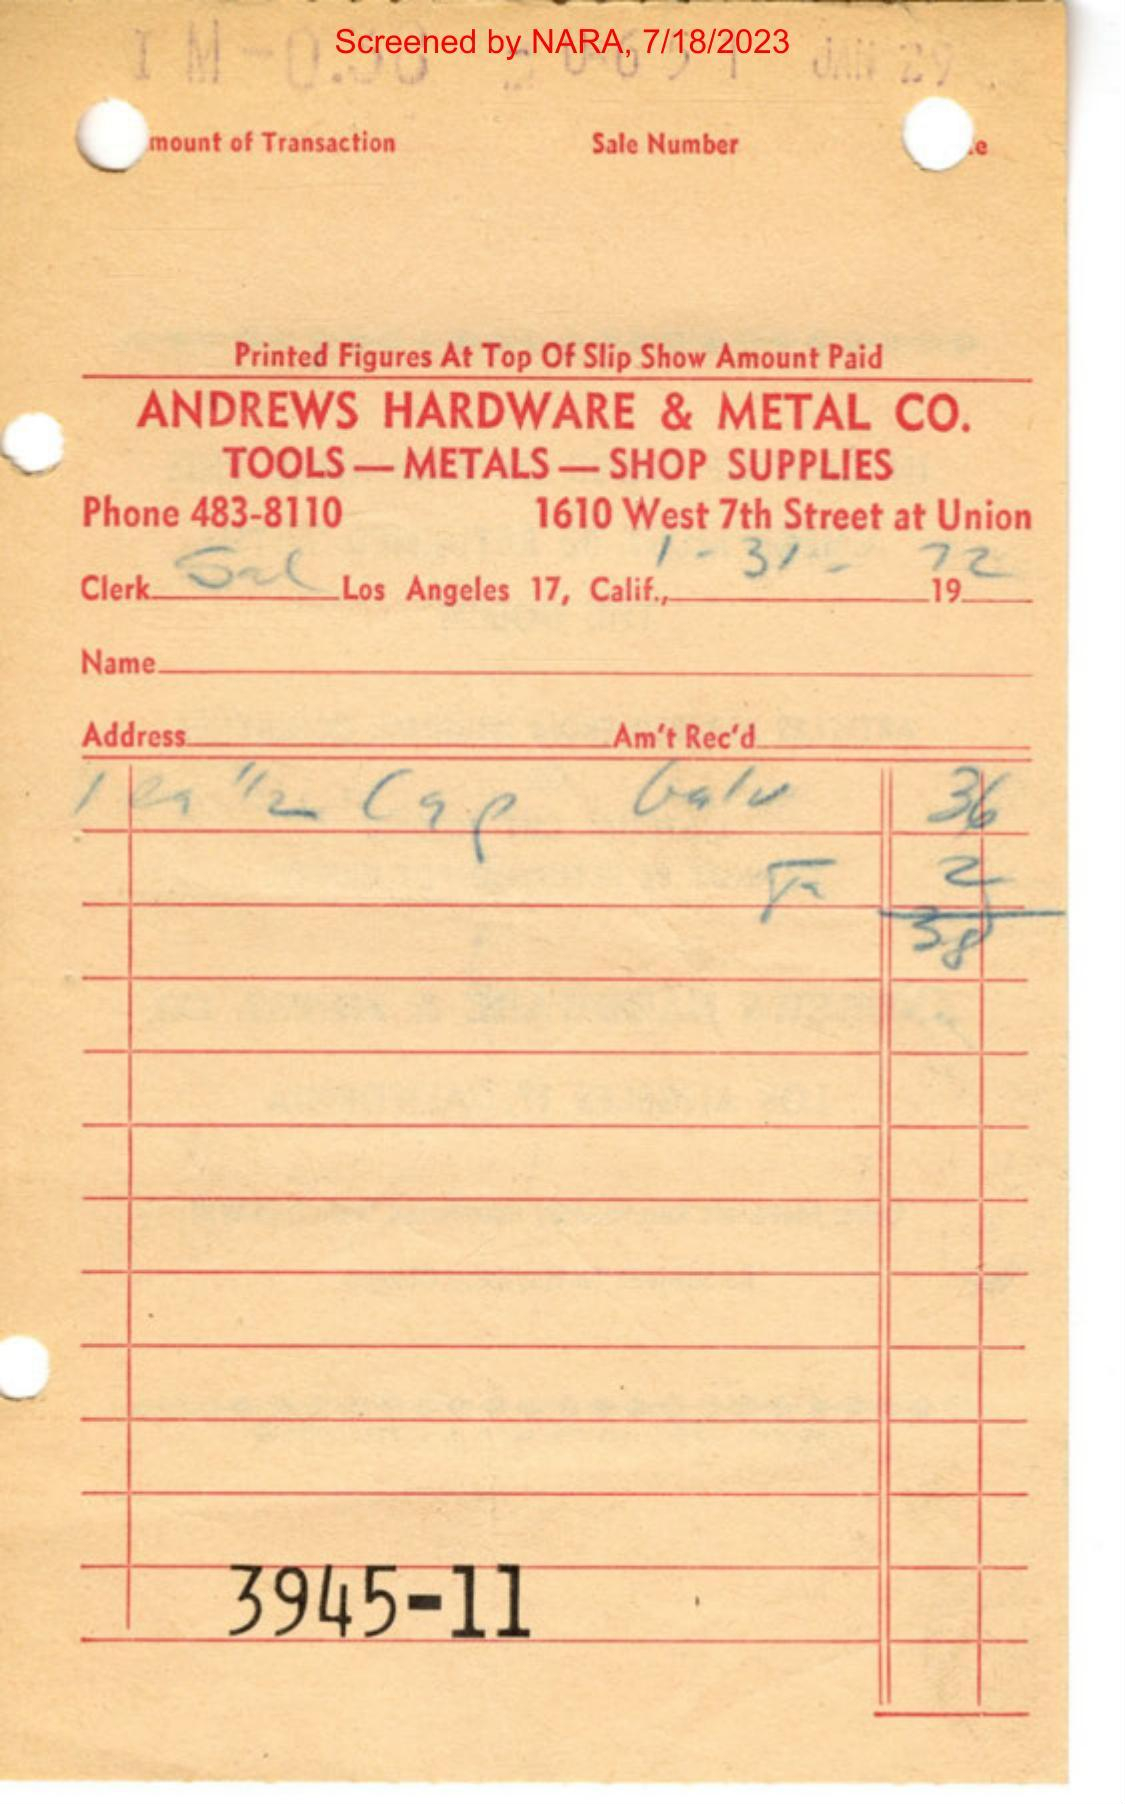 Screened by NARA, 7/18/2023
I M - 0.38 JAN 29
mount of Transaction Sale Number e
Printed Figures At Top Of Slip Show Amount Paid
ANDREWS HARDWARE & METAL CO.
TOOLS — METALS — SHOP SUPPLIES
Phone 483-8110 1610 West 7th Street at Union
Clerk Sal Los Angeles 17, Calif., 1-31- 19 72
Name
Address Am't Rec'd
1 ea 1/2 Cap Galv 36
2
38
3945-11